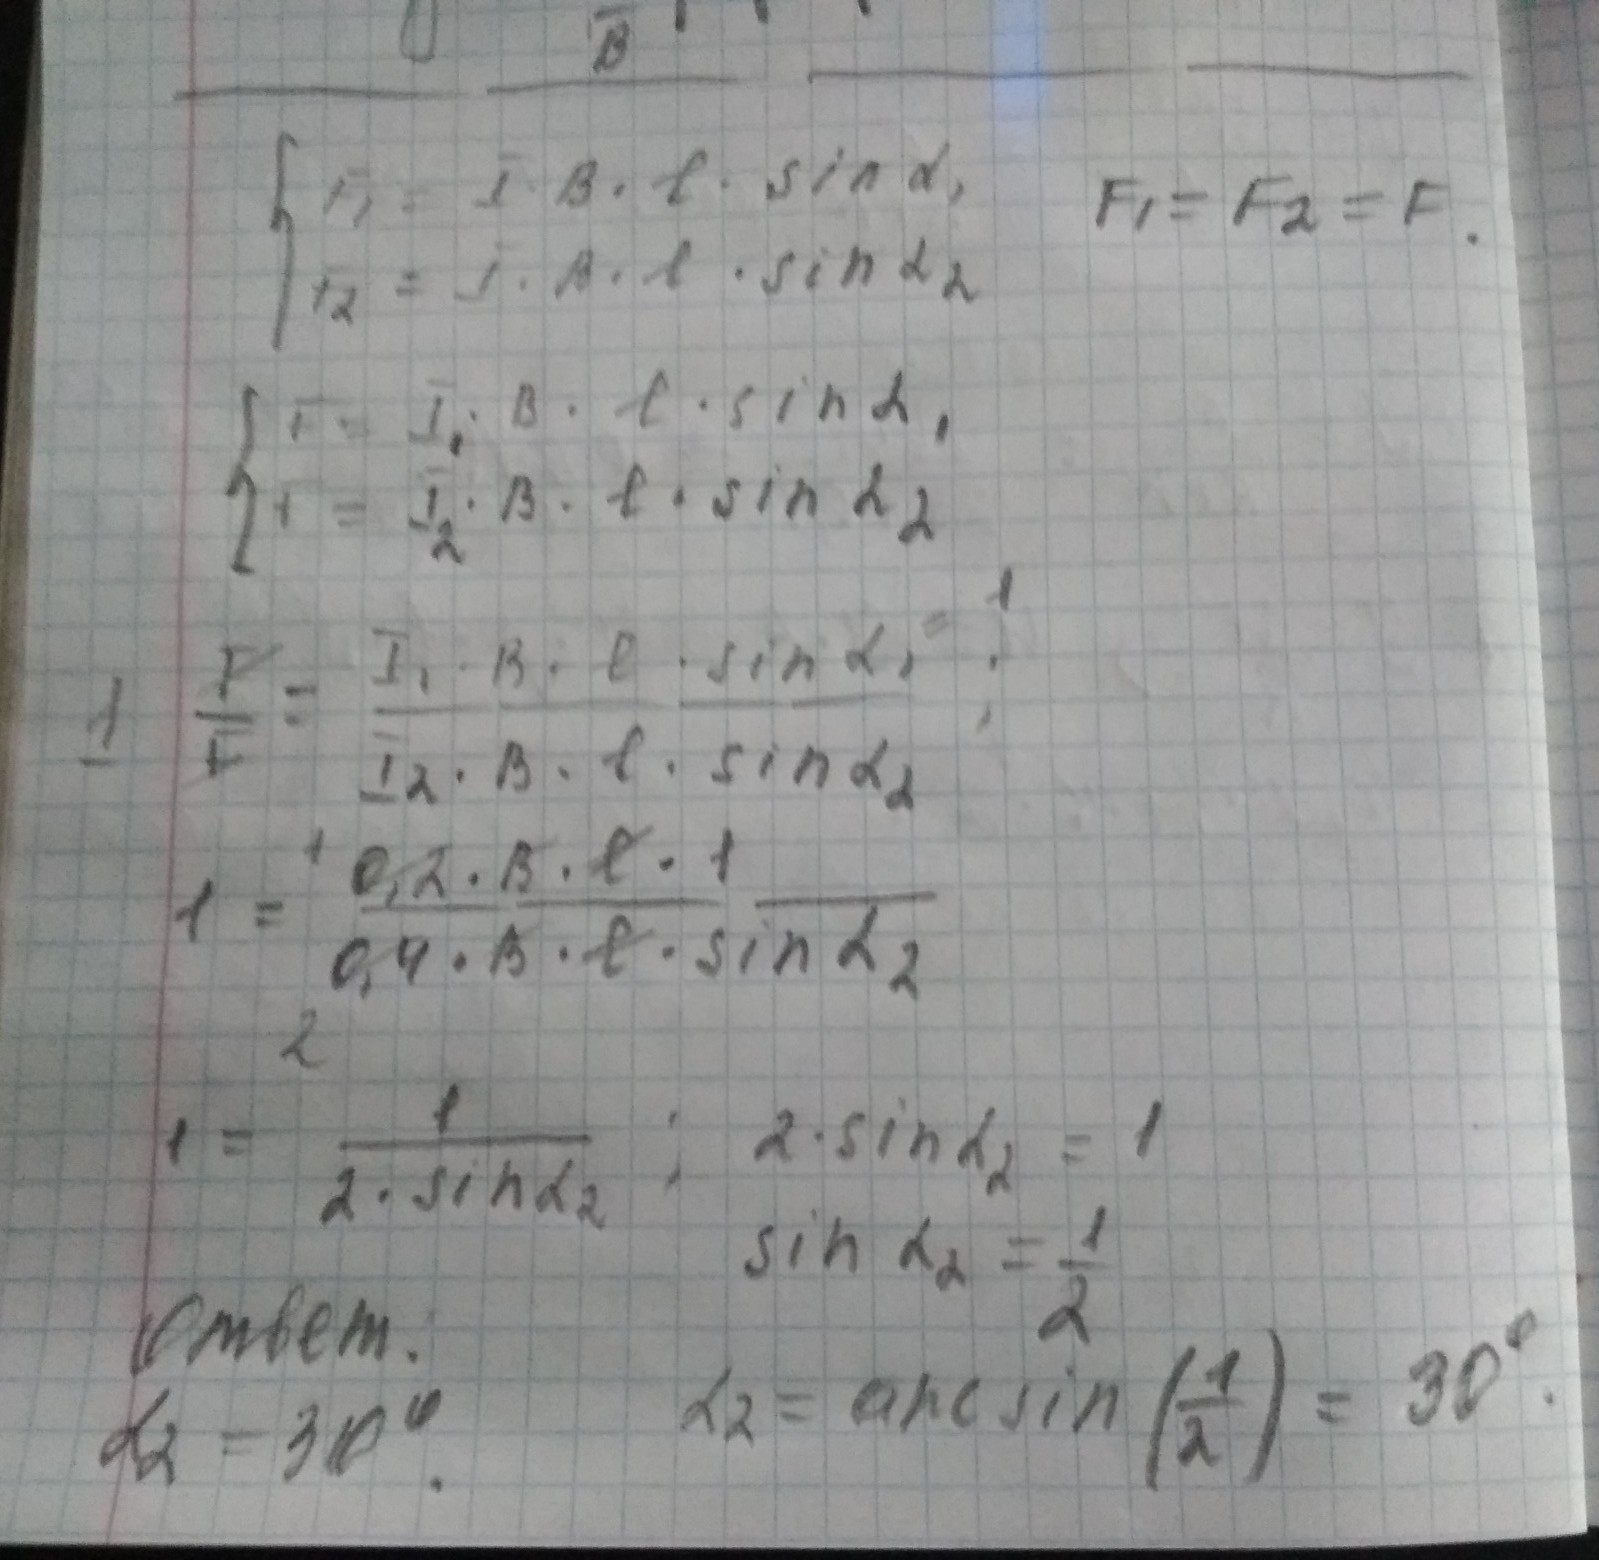 B
F₁ = I · B · ℓ · sin α₁ F₁ = F₂ = F.
F₂ = I · B · ℓ · sin α₂
F = I₁ · B · ℓ · sin α₁
F = I₂ · B · ℓ · sin α₂
1 F/F = (I₁ · B · ℓ · sin α₁ = 1)/(I₂ · B · ℓ · sin α₂) ;
1 = (¹ 0,2 · B · ℓ · 1)/(0,4 · B · ℓ · sin α₂)
2
1 = 1/(2 · sin α₂) ; 2 · sin α₂ = 1
sin α₂ = 1/2
Ответ:
α₂ = 30°. α₂ = arcsin (1/2) = 30°.